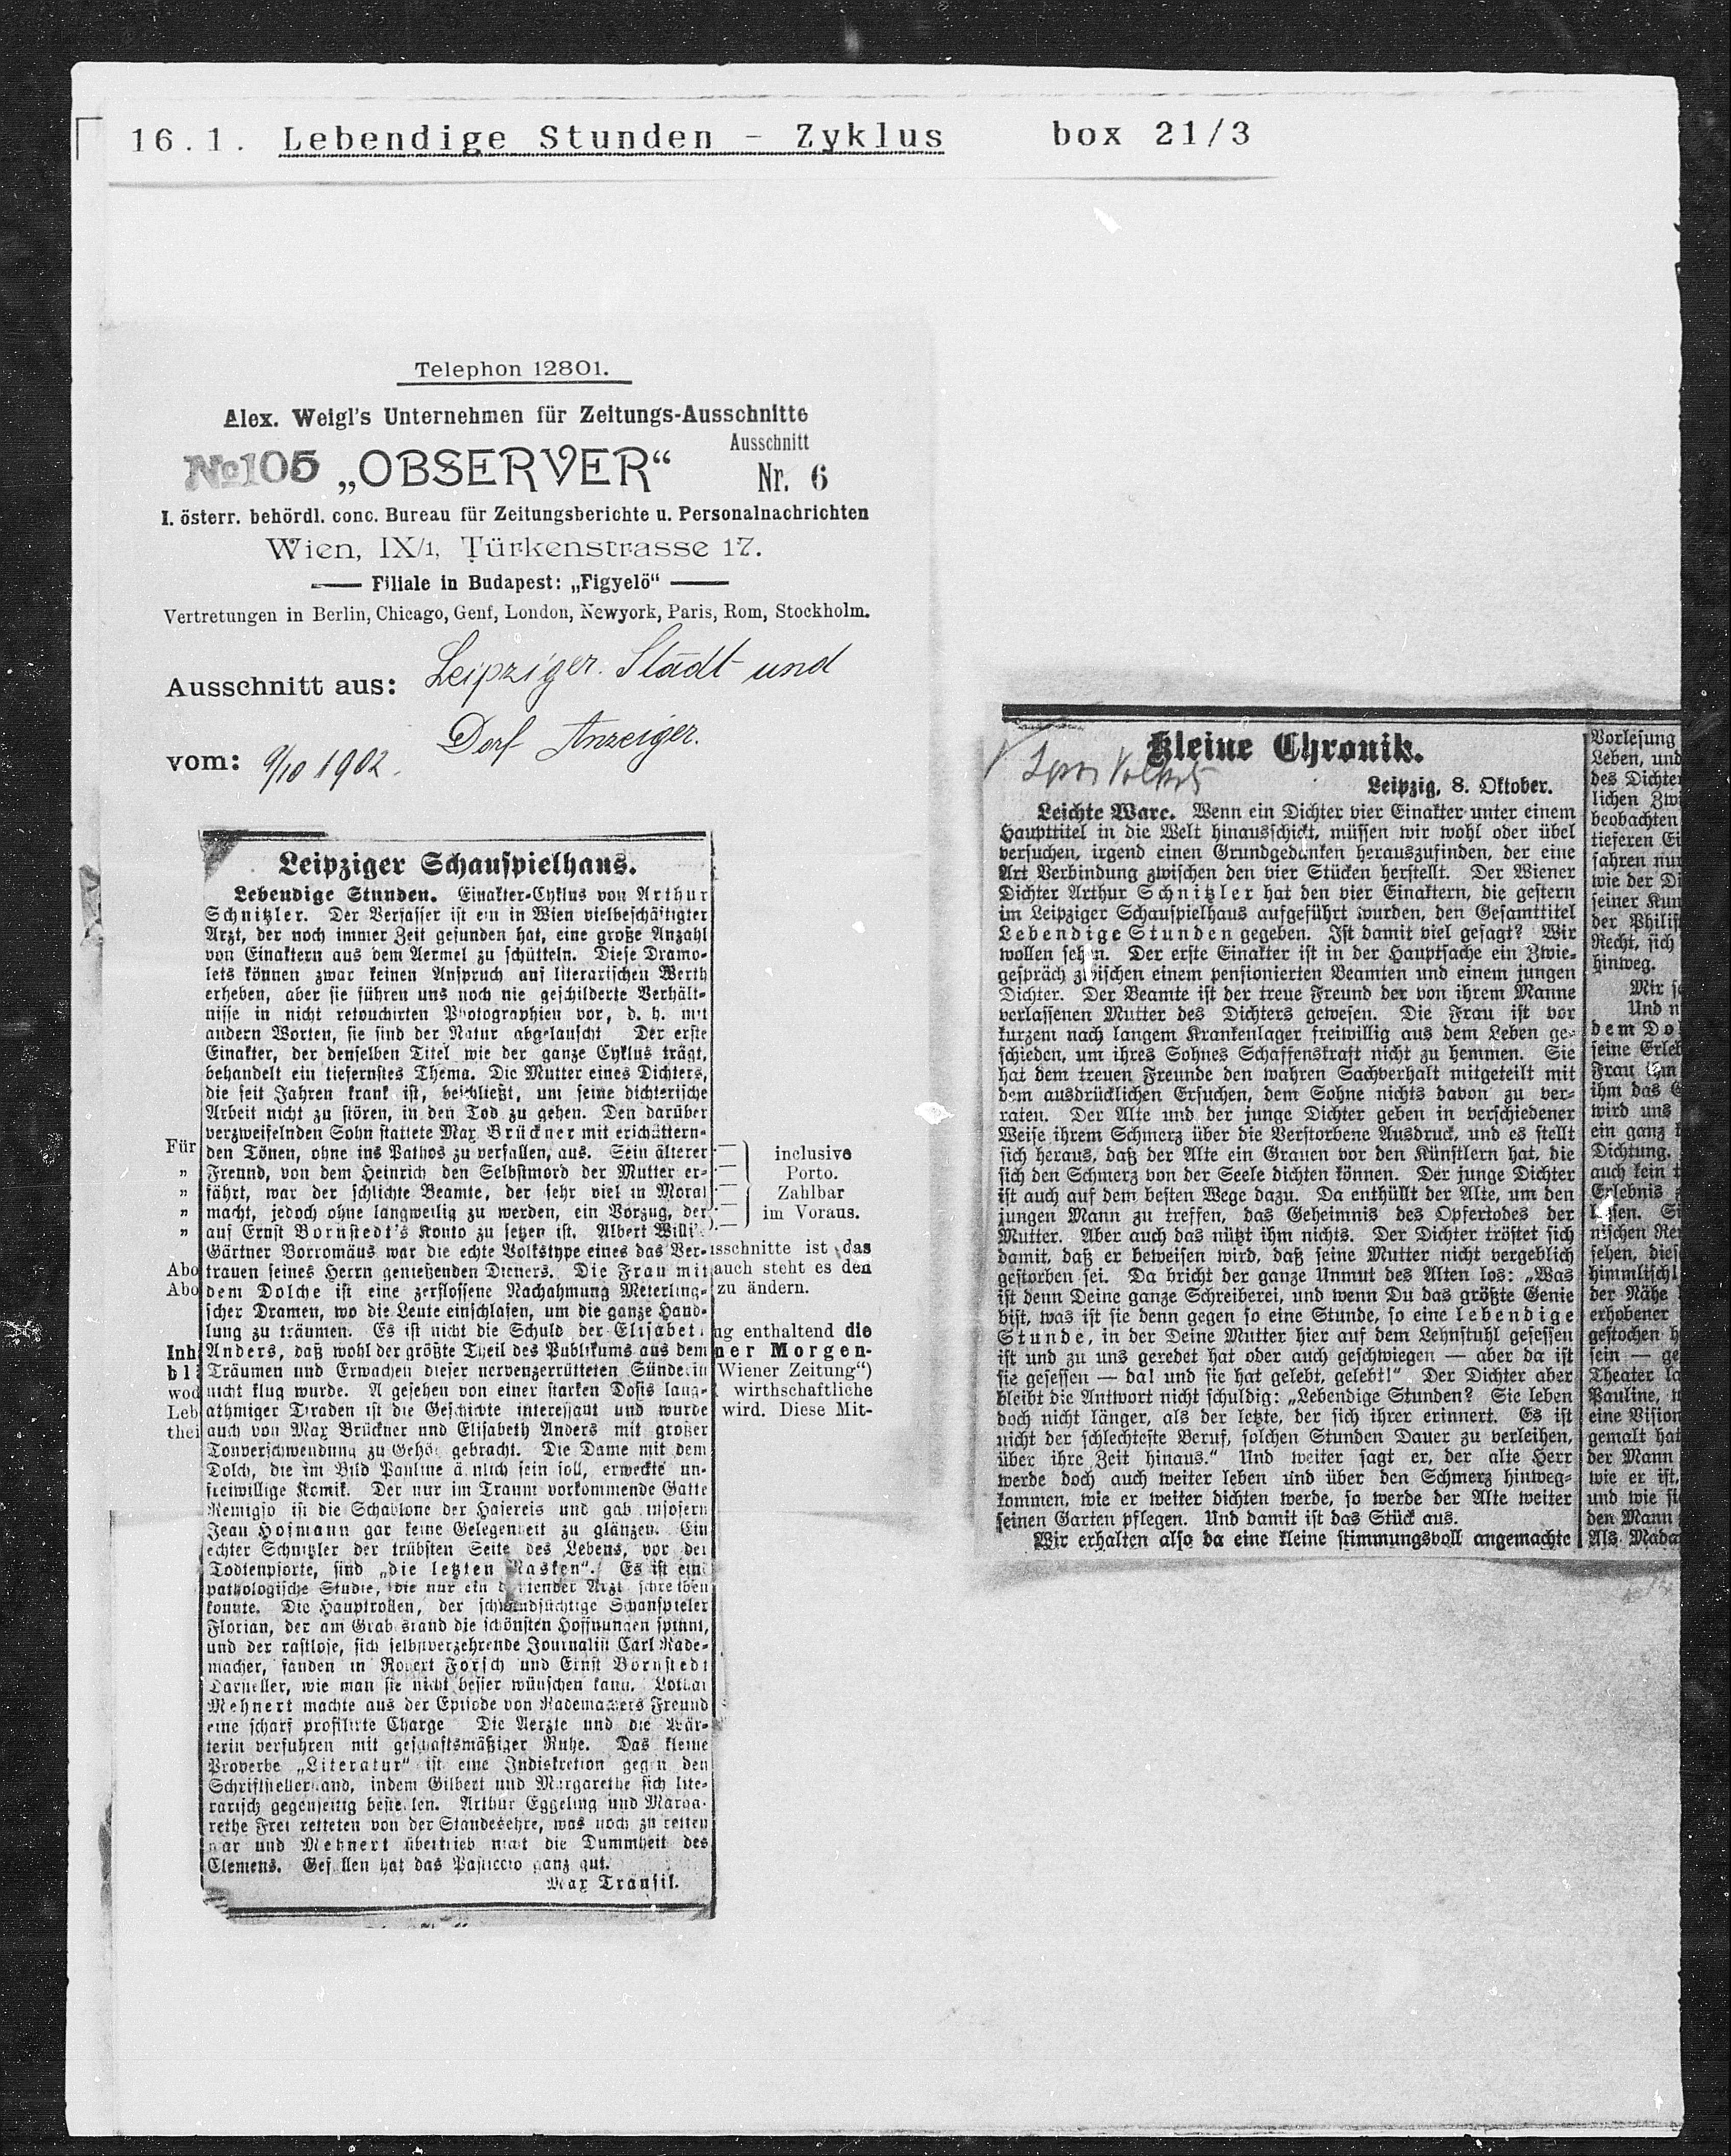 16.1. Lebendige Stunden - Zyklus box 21/3
Telephon 12801.
Alex. Weigl's Unternehmen für Zeitungs-Ausschnitte
Ausschnitt
№105 „OBSERVER“ Nr. 6
I. österr. behördl. conc. Bureau für Zeitungsberichte u. Personalnachrichten
Wien, IX/1, Türkenstrasse 17.
Filiale in Budapest: „Figyelö“
Vertretungen in Berlin, Chicago, Genf, London, Newyork, Paris, Rom, Stockholm.
Ausschnitt aus: Leipziger Stadt und
Dorf Anzeiger.
vom: 9/10 1902.
Leipziger Schauspielhaus.
Lebendige Stunden. Einakter-Cyklus von Arthur
Schnitzler. Der Verfasser ist ein in Wien vielbeschäftigter
Arzt, der noch immer Zeit gefunden hat, eine große Anzahl
von Einaktern aus dem Aermel zu schütteln. Diese Dramo-
lets können zwar keinen Anspruch auf literarischen Werth
erheben, aber sie führen uns noch nie geschilderte Verhält-
nisse in nicht retouchirten Photographien vor, d. h. mit
andern Worten, sie sind der Natur abgelauscht Der erste
Einakter, der denselben Titel wie der ganze Cyklus trägt,
behandelt ein tiefernstes Thema. Die Mutter eines Dichters,
die seit Jahren krank ist, beschließt, um seine dichterische
Arbeit nicht zu stören, in den Tod zu gehen. Den darüber
verzweifelnden Sohn stattete Max Brückner mit erschüttern-
den Tönen, ohne ins Pathos zu verfallen, aus. Sein älterer
Freund, von dem Heinrich den Selbstmord der Mutter er-
fährt, war der schlichte Beamte, der sehr viel in Moral
macht, jedoch ohne langweilig zu werden, ein Vorzug, der
auf Ernst Bornstedt's Konto zu setzen ist. Albert Willi's
Gärtner Borromäus war die echte Volkstype eines das Ver-
trauen seines Herrn genießenden Dieners. Die Frau mit
dem Dolche ist eine zerflossene Nachahmung Meterling-
scher Dramen, wo die Leute einschlafen, um die ganze Hand-
lung zu träumen. Es ist nicht die Schuld der Elisabet
Anders, daß wohl der größte Theil des Publikums aus dem
Träumen und Erwachen dieser nervenzerrütteten Sünderin
nicht klug wurde. A gesehen von einer starken Dosis lang-
athmiger Tiraden ist die Geschichte interessant und wurde
auch von Max Brückner und Elisabeth Anders mit großer
Tonverschwendung zu Gehör gebracht. Die Dame mit dem
Dolch, die im Bild Pauline ähnlich sein soll, erweckte un-
freiwillige Komik. Der nur im Traum vorkommende Gatte
Remigio ist die Schablone der Hasereis und gab insofern
Jean Hofmann gar keine Gelegenheit zu glänzen. Ein
echter Schnitzler der trübsten Seite des Lebens, vor der
Todtenpforte, sind „die letzten Masken“. Es ist eine
pathologische Studie, die nur ein Arzt schreiben
konnte. Die Hauptrollen, der schwindsüchtige Schauspieler
Florian, der am Grabesrand die schönsten Hoffnungen spinnt,
und der rastlose, sich selbstverzehrende Journalist Carl Rade-
macher, fanden in Robert Forsch und Ernst Bornstedt
Darsteller, wie man sie nicht besser wünschen kann. Lothar
Mehnert machte aus der Episode von Rademachers Freund
eine scharf profilirte Charge Die Aerzte und die Wär-
terin verfuhren mit geschäftsmäßiger Ruhe. Das kleine
Proverbe „Literatur“ ist eine Indiskretion gegen den
Schriftstellerstand, indem Gilbert und Margarethe sich lite-
rarisch gegenseitig bestehlen. Arthur Eggeling und Marga-
rethe Frei retteten von der Standesehre, was noch zu retten
war und Mehnert übertrieb nicht die Dummheit des
Clemens. Gefallen hat das Pasticcio ganz gut.
Max Tränsil.
Für
„
„
„
„
Abo
Abo
Inh
bli
wod
Leb
thei
inclusive
Porto.
Zahlbar
im Voraus.
isschnitte ist das
auch steht es den
zu ändern.
ng enthaltend die
ner Morgen-
Wiener Zeitung“)
wirthschaftliche
wird. Diese Mit-
Kleine Chronik.
Leipzig, 8. Oktober.
Leichte Ware. Wenn ein Dichter vier Einakter unter einem
Haupttitel in die Welt hinausschickt, müssen wir wohl oder übel
versuchen, irgend einen Grundgedanken herauszufinden, der eine
Art Verbindung zwischen den vier Stücken herstellt. Der Wiener
Dichter Arthur Schnitzler hat den vier Einaktern, die gestern
im Leipziger Schauspielhaus aufgeführt wurden, den Gesamttitel
Lebendige Stunden gegeben. Ist damit viel gesagt? Wir
wollen sehen. Der erste Einakter ist in der Hauptsache ein Zwie-
gespräch zwischen einem pensionierten Beamten und einem jungen
Dichter. Der Beamte ist der treue Freund der von ihrem Manne
verlassenen Mutter des Dichters gewesen. Die Frau ist vor
kurzem nach langem Krankenlager freiwillig aus dem Leben ge-
schieden, um ihres Sohnes Schaffenskraft nicht zu hemmen. Sie
hat dem treuen Freunde den wahren Sachverhalt mitgeteilt mit
dem ausdrücklichen Ersuchen, dem Sohne nichts davon zu ver-
raten. Der Alte und der junge Dichter geben in verschiedener
Weise ihrem Schmerz über die Verstorbene Ausdruck, und es stellt
sich heraus, daß der Alte ein Grauen vor den Künstlern hat, die
sich den Schmerz von der Seele dichten können. Der junge Dichter
ist auch auf dem besten Wege dazu. Da enthüllt der Alte, um den
jungen Mann zu treffen, das Geheimnis des Opfertodes der
Mutter. Aber auch das nützt ihm nichts. Der Dichter tröstet sich
damit, daß er beweisen wird, daß seine Mutter nicht vergeblich
gestorben sei. Da bricht der ganze Unmut des Alten los: „Was
ist denn Deine ganze Schreiberei, und wenn Du das größte Genie
bist, was ist sie denn gegen so eine Stunde, so eine lebendige
Stunde, in der Deine Mutter hier auf dem Lehnstuhl gesessen
ist und zu uns geredet hat oder auch geschwiegen — aber da ist
sie gesessen — da! und sie hat gelebt, gelebt!“ Der Dichter aber
bleibt die Antwort nicht schuldig: „Lebendige Stunden? Sie leben
doch nicht länger, als der letzte, der sich ihrer erinnert. Es ist
nicht der schlechteste Beruf, solchen Stunden Dauer zu verleihen,
über ihre Zeit hinaus.“ Und weiter sagt er, der alte Herr
werde doch auch weiter leben und über den Schmerz hinweg-
kommen, wie er weiter dichten werde, so werde der Alte weiter
seinen Garten pflegen. Und damit ist das Stück aus.
Wir erhalten also da eine kleine stimmungsvoll angemachte
Vorlesung
Leben, und
des Dichter
lichen Zwi
beobachten
tieferen Ei
fahren nur
wie der Di
seiner Kun
der Philist
Recht, sich
hinweg.
Mir s
Und n
dem Do
seine Erleb
Frau ihm
ihm das G
wird uns
ein ganz
Dichtung.
auch kein t
Erlebnis
lassen. Si
nischen Ren
sehen, dies
himmlischl
der Nähe
erhobener
gestochen h
sein — ge
Theater la
Pauline, w
eine Vision
gemalt hat
der Mann
wie er ist,
und wie sie
den Mann
Als Mada